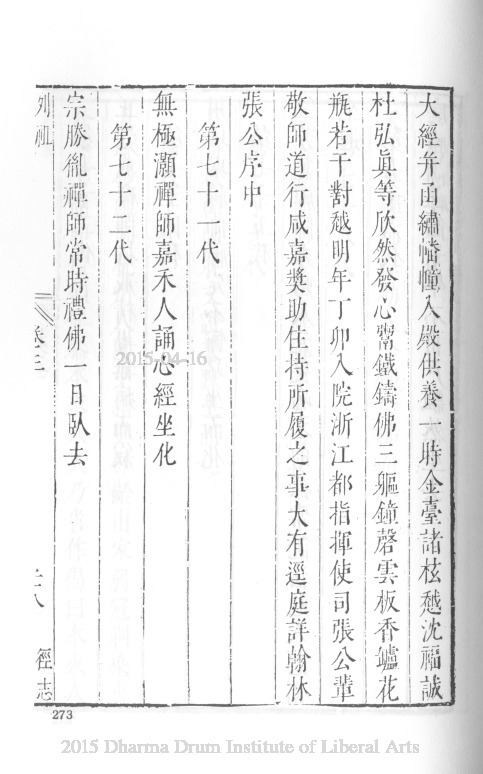 大經并函繡幡幢入殿供養一時金臺諸檀越沈福誠
杜弘眞等欣然發心鬻鐵鑄佛三軀鐘磬雲板香爐花
瓶若干對越明年丁卯入院浙江都指揮使司張公輩
敬師道行咸嘉奬助住持所履之事大有逕庭詳翰林
張公序中
第七十一代
無極灝禪師嘉禾人誦心經坐化
第七十二代
宗勝胤禪師常時禮佛一日臥去
列祖
卷三
徑志
273
2015-04-16
2015 Dharma Drum Institute of Liberal Arts